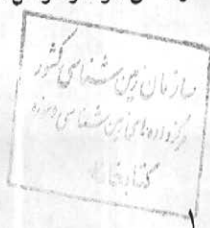 سازمان زمین شناسی کشور
مرکز داده های زمین شناسی و موزه
کتابخانه
۱